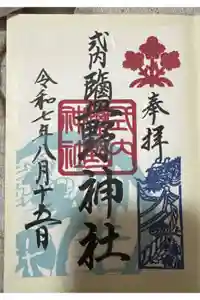 奉拝
式内 鹽野神社
令和七年八月十五日